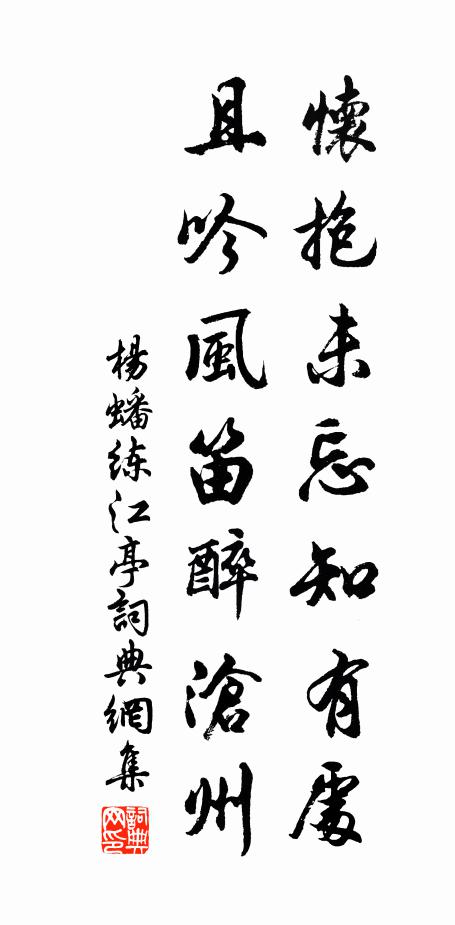 懷抱未忘知有處
且吟風笛醉滄州
楊蟠練江亭詞典網集
詞典網印